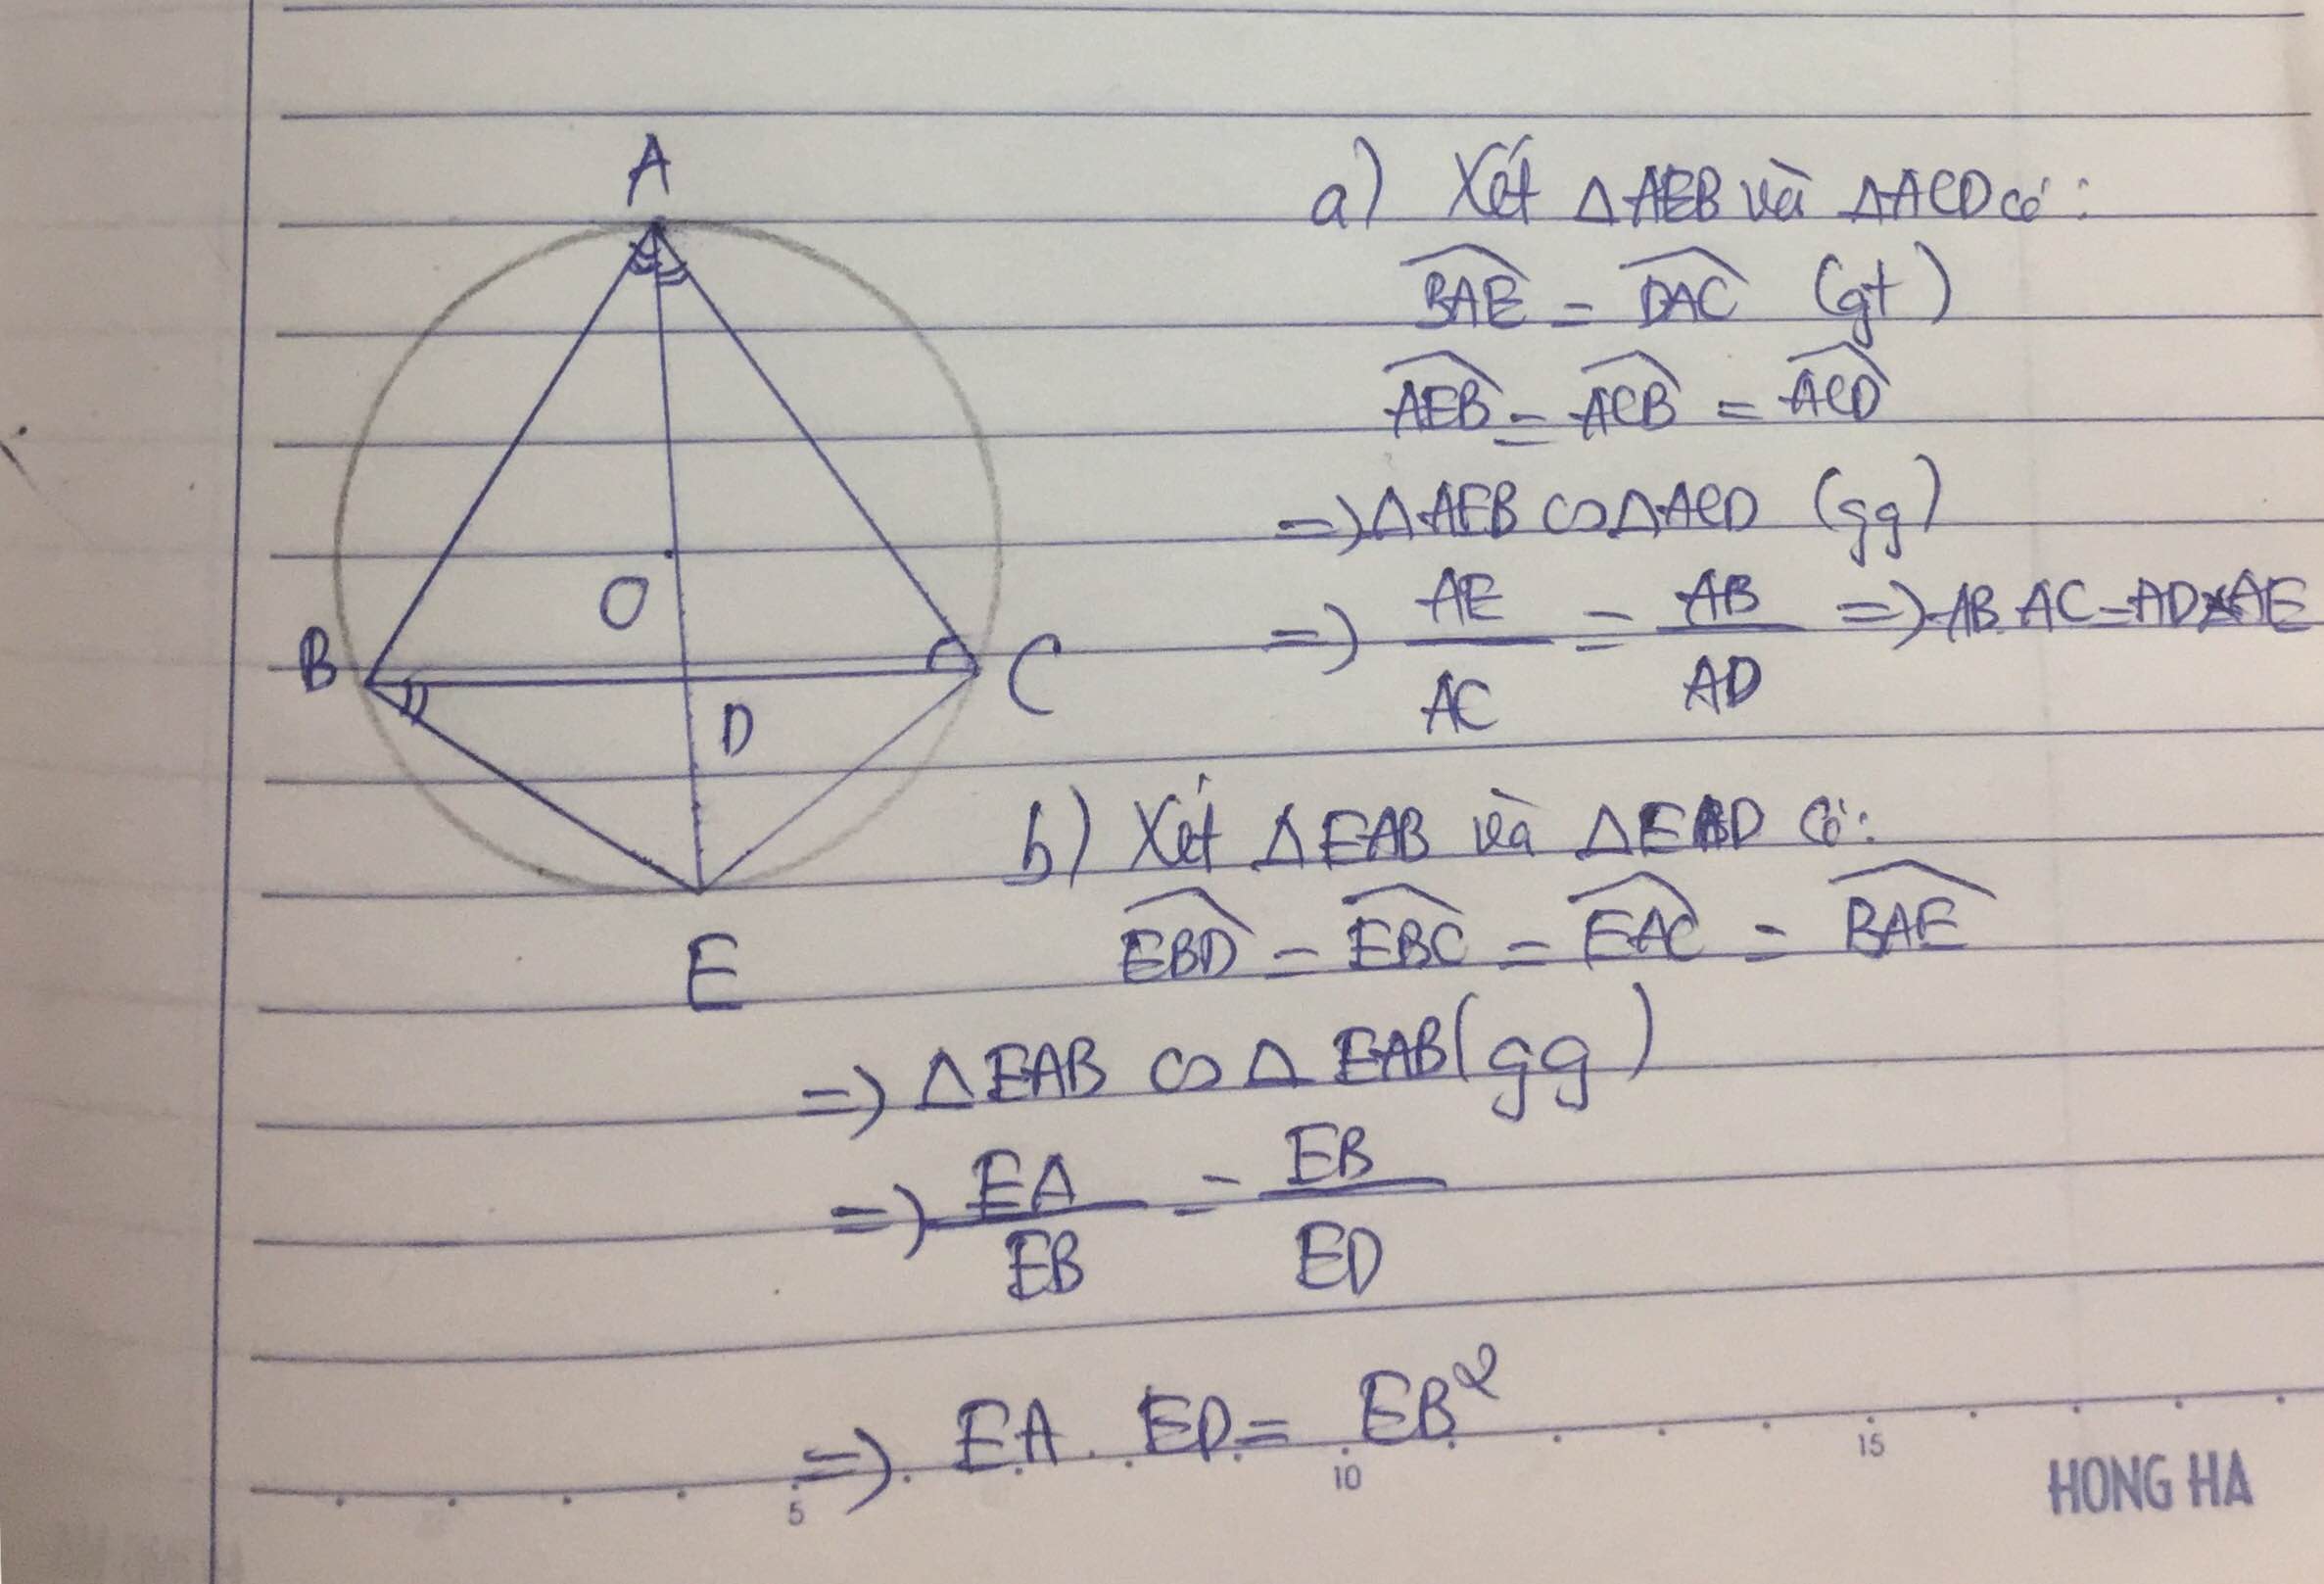 A
O
B
C
D
E
a) Xét △AEB và △ACD có:
$\widehat{BAE}$ = $\widehat{DAC}$ (gt)
$\widehat{AEB}$ = $\widehat{ACB}$ = $\widehat{ACD}$
=> △AEB ∽ △ACD (gg)
=> $\frac{AE}{AC}$ = $\frac{AB}{AD}$ => AB.AC=AD×AE
b) Xét △EAB và △EBD có:
$\widehat{EBD}$ = $\widehat{EBC}$ = $\widehat{EAC}$ = $\widehat{BAE}$
=> △EAB ∽ △EAB (gg)
=> $\frac{EA}{EB}$ = $\frac{EB}{ED}$
=> EA . ED = EB²
5 10 15
HONG HA